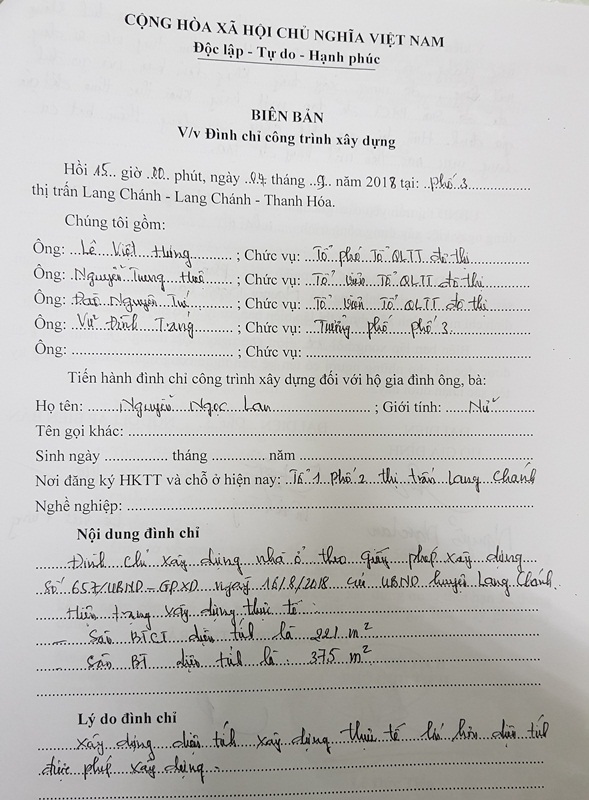 CỘNG HÒA XÃ HỘI CHỦ NGHĨA VIỆT NAM
Độc lập - Tự do - Hạnh phúc
BIÊN BẢN
V/v Đình chỉ công trình xây dựng
Hồi 15 giờ 00 phút, ngày 07 tháng 9 năm 2018 tại: phố 3
thị trấn Lang Chánh - Lang Chánh - Thanh Hóa.
Chúng tôi gồm:
Ông: Lê Viết Hùng ; Chức vụ: Tổ phó Tổ QLTT đô thị
Ông: Nguyễn Trung Thuê ; Chức vụ: Tổ viên Tổ QLTT đô thị
Ông: Nguyên Tú ; Chức vụ: Tổ viên Tổ QLTT đô thị
Ông: Vự Đình Trang ; Chức vụ: Trưởng phố phố 3
Ông: ; Chức vụ:
Tiến hành đình chỉ công trình xây dựng đối với hộ gia đình ông, bà:
Họ tên: Nguyễn Ngọc Lan ; Giới tính: Nữ
Tên gọi khác:
Sinh ngày tháng năm
Nơi đăng ký HKTT và chỗ ở hiện nay: Tổ 1 phố 2 thị trấn Lang Chánh
Nghề nghiệp:
Nội dung đình chỉ
Đình chỉ xây dựng nhà ở theo giấy phép xây dựng
số 657/UBND-GPXD ngày 16/8/2018 của UBND huyện Lang Chánh.
Hiện trạng xây dựng thực tế
Sàn diện tích là 221 m²
Sàn diện tích là 375 m²
Lý do đình chỉ
xây dựng diện tích xây dựng thực tế lớn hơn diện tích
được phép xây dựng.